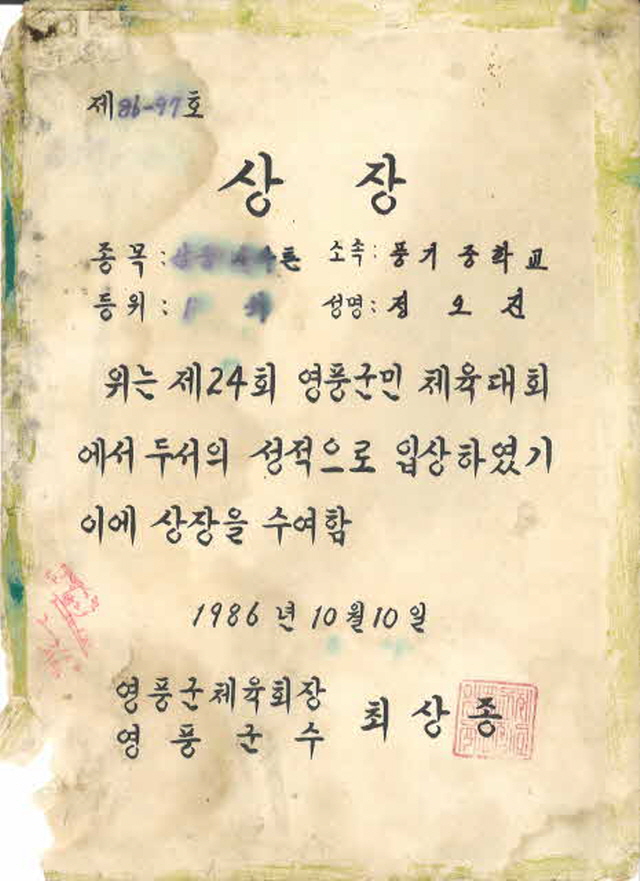 제86-97호
상 장
종목: 소속: 풍기중학교
등위: 1 위 성명: 정오진
위는 제24회 영풍군민 체육대회
에서 두서의 성적으로 입상하였기
이에 상장을 수여함
1986년 10월 10일
영풍군체육회장
영풍군수 최상종